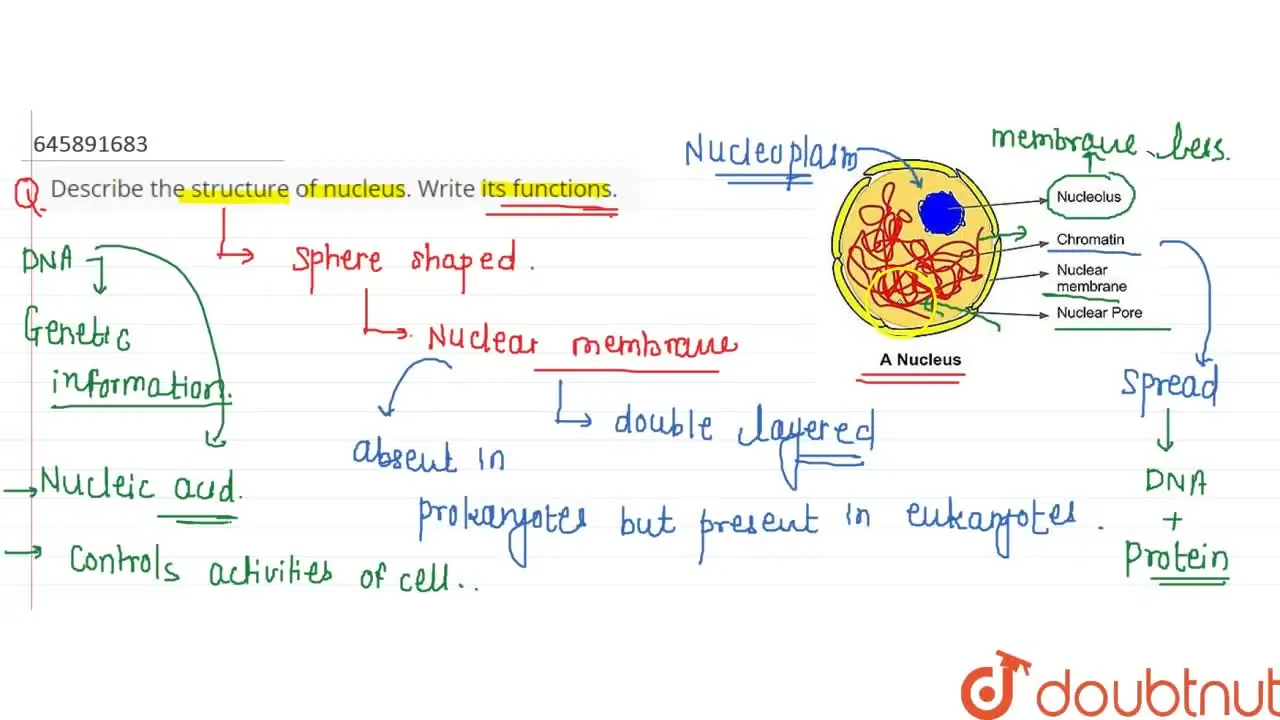 645891683
Q. Describe the structure of nucleus. Write its functions.
Sphere shaped.
Nuclear membrane
double layered
absent in
prokaryotes but present in eukaryotes.
DNA
Genetic
information.
Nucleic acid.
Controls activities of cell..
Nucleoplasm
membrane less.
Nucleolus
Chromatin
Nuclear
membrane
Nuclear Pore
A Nucleus
Spread
DNA
+
Protein
doubtnut